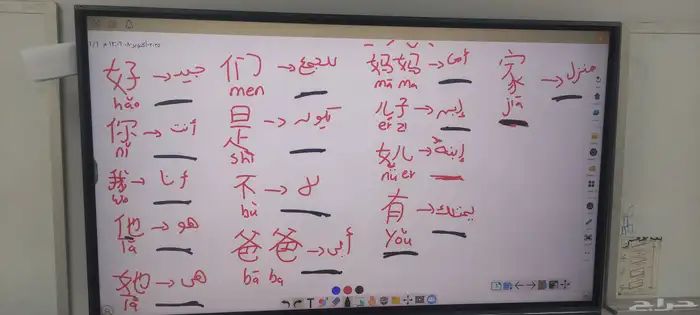 好 → جيد
hǎo
你 → أنت
nǐ
我 → أنا
wǒ
他 → هو
tā
她 → هي
tā
们 → للجمع
men
是 → يكون
shì
不 → لا
bù
爸爸 → أبي
bā ba
妈妈 → أمي
mā ma
儿子 → إبن
ér zi
女儿 → إبنة
nǚ er
有 → يمتلك
yǒu
家 → منزل
jiā
حراج